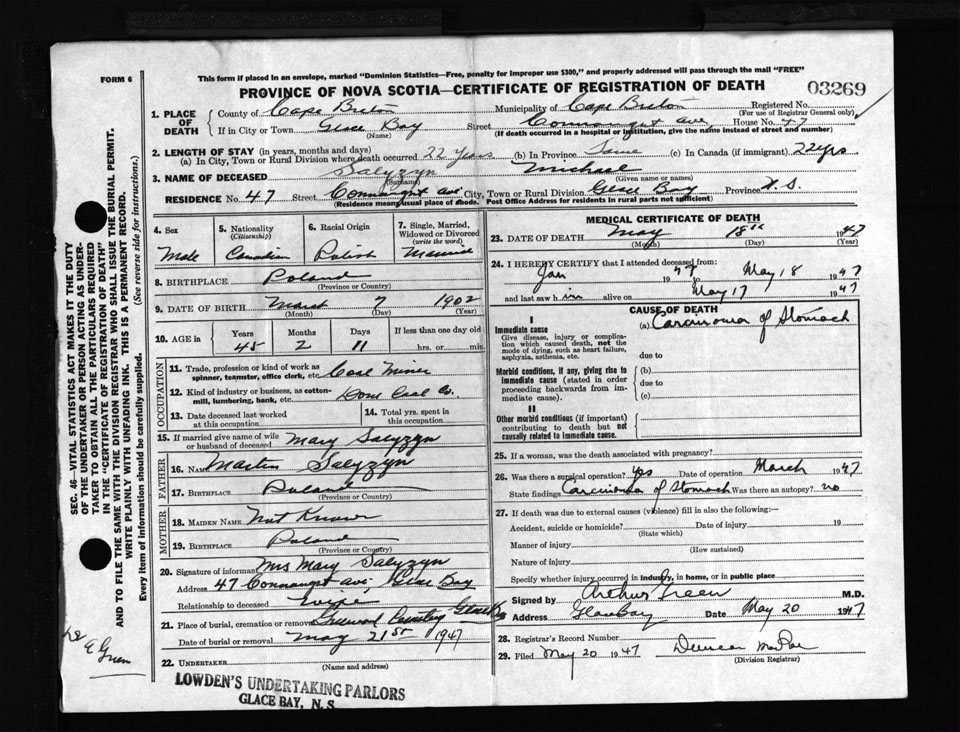 FORM 6
This form if placed in an envelope, marked "Dominion Statistics—Free, penalty for improper use $300," and properly addressed will pass through the mail "FREE"
PROVINCE OF NOVA SCOTIA—CERTIFICATE OF REGISTRATION OF DEATH
03269
1. PLACE OF DEATH County of Cape Breton Municipality of Cape Breton Registered No.
(For use of Registrar General only)
If in City or Town Glace Bay Street Connaught Ave, House No. 47
(Name) (If death occurred in a hospital or institution, give the name instead of street and number)
2. LENGTH OF STAY (in years, months and days)
(a) In City, Town or Rural Division where death occurred 22 years (b) In Province Same (c) In Canada (if immigrant) 22 yrs
3. NAME OF DECEASED Salyzyn Michael
(Surname) (Given name or names)
RESIDENCE No. 47 Street Connaught Ave City, Town or Rural Division Glace Bay Province N. S.
(Residence means usual place of abode. Post Office Address for residents in rural parts not sufficient)
4. Sex Male
5. Nationality (Citizenship) Canadian
6. Racial Origin Polish
7. Single, Married, Widowed or Divorced (write the word) Married
8. BIRTHPLACE Poland
(Province or Country)
9. DATE OF BIRTH March 7 1902
(Month) (Day) (Year)
10. AGE in Years Months Days If less than one day old
45 2 11 hrs. or min.
OCCUPATION
11. Trade, profession or kind of work as spinner, teamster, office clerk, etc. Coal Miner
12. Kind of industry or business, as cotton-mill, lumbering, bank, etc. Dom Coal Co.
13. Date deceased last worked at this occupation
14. Total yrs. spent in this occupation
15. If married give name of wife or husband of deceased Mary Salyzyn
FATHER
16. NAME Martin Salyzyn
17. BIRTHPLACE Poland
(Province or Country)
MOTHER
18. MAIDEN NAME Not Known
19. BIRTHPLACE Poland
(Province or Country)
20. Signature of informant Mrs Mary Salyzyn
Address 47 Connaught Ave, Glace Bay
Relationship to deceased Wife
21. Place of burial, cremation or removal Greenwood Cemetery Glace Bay
Date of burial or removal May 21st 1947
22. UNDERTAKER
(Name and address)
LOWDEN'S UNDERTAKING PARLORS
GLACE BAY, N. S.
MEDICAL CERTIFICATE OF DEATH
23. DATE OF DEATH May 18th 1947
(Month) (Day) (Year)
24. I HEREBY CERTIFY that I attended deceased from:
Jan 1947 to May 18 1947
and last saw him alive on May 17 1947
CAUSE OF DEATH
I
Immediate cause
Give disease, injury or complication which caused death, not the mode of dying, such as heart failure, asphyxia, asthenia, etc.
(a) Carcinoma of Stomach
due to
Morbid conditions, if any, giving rise to immediate cause (stated in order proceeding backwards from immediate cause).
(b)
due to
(c)
II
Other morbid conditions (if important) contributing to death but not causally related to immediate cause.
25. If a woman, was the death associated with pregnancy?
26. Was there a surgical operation? Yes Date of operation March 1947
State findings Carcinoma of Stomach Was there an autopsy? no
27. If death was due to external causes (violence) fill in also the following:—
Accident, suicide or homicide? Date of injury 19
(State which)
Manner of injury
(How sustained)
Nature of injury
Specify whether injury occurred in industry, in home, or in public place
Signed by Arthur Green M.D.
Address Glace Bay Date May 20 1947
28. Registrar's Record Number
29. Filed May 20 1947 Duncan McRae
(Division Registrar)
SEC. 46—VITAL STATISTICS ACT MAKES IT THE DUTY
OF THE UNDERTAKER OR PERSON ACTING AS UNDERTAKER TO OBTAIN ALL THE PARTICULARS REQUIRED
IN THE "CERTIFICATE OF REGISTRATION OF DEATH"
AND TO FILE THE SAME WITH THE DIVISION REGISTRAR WHO SHALL ISSUE THE BURIAL PERMIT.
WRITE PLAINLY WITH UNFADING INK. THIS IS A PERMANENT RECORD.
Every item of information should be carefully supplied. (See reverse side for instructions.)